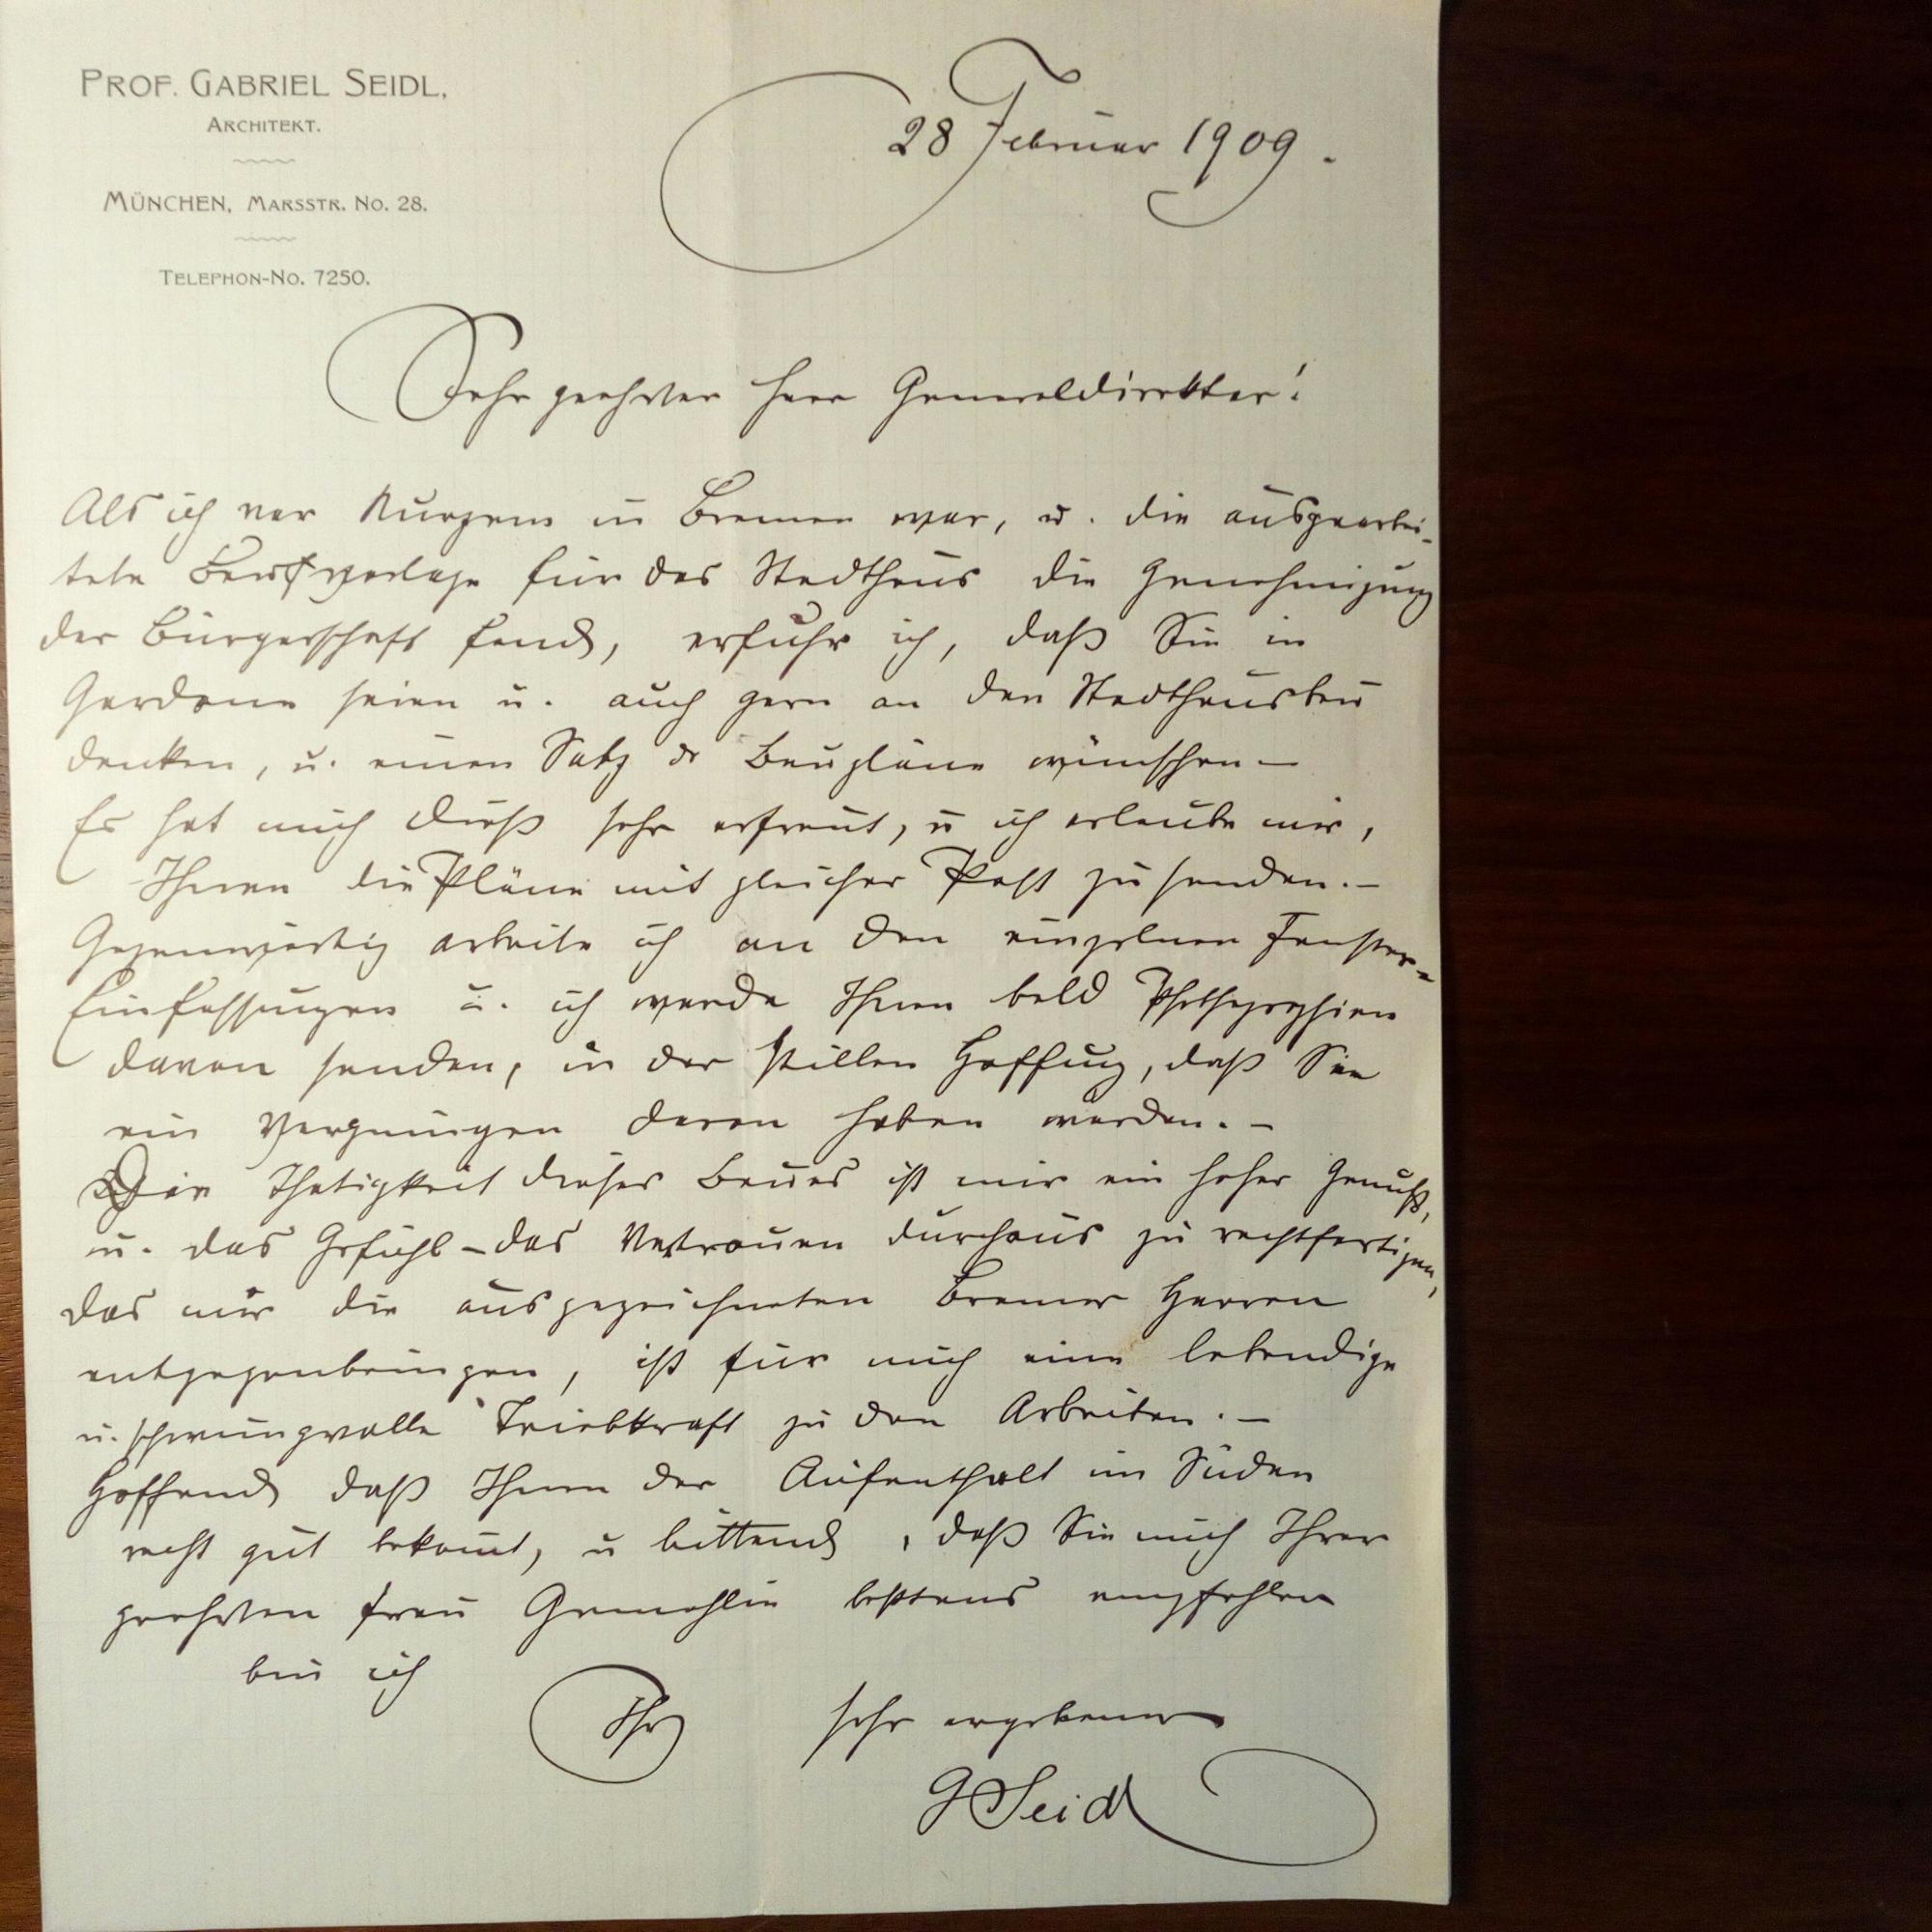 PROF. GABRIEL SEIDL,
ARCHITEKT.
MÜNCHEN, MARSSTR. NO. 28.
TELEPHON-NO. 7250.
28 Februar 1909.
Sehr geehrter Herr Generaldirektor!
Als ich vor Kurzem in Bremen war, u. die ausgearbei-
tete für das Stadthaus die Genehmigung
der Bürgerschaft fand, erfuhr ich, daß Sie in
Gardone seien u. auch gern an den Stadthausbau
denken, u. einen Satz der Baupläne wünschen –
Es hat mich dieß sehr erfreut, u ich erlaube mir,
Ihnen die Pläne mit gleicher Post zu senden. –
Gegenwärtig arbeite ich an den einzelnen Fenster-
Einfassungen u. ich werde Ihnen bald Photographien
davon senden, in der stillen Hoffnung, daß Sie
ein Vergnügen daran haben werden. –
Die Thätigkeit dieses Baues ist mir ein hoher Genuß,
u. das Gefühl – das Vertrauen durchaus zu rechtfertigen,
das mir die ausgezeichneten Bremer Herren
entgegenbringen, ist für mich eine lebendige
u. schwungvolle Triebkraft zu den Arbeiten. –
Hoffend daß Ihnen der Aufenthalt im Süden
recht gut bekomt, u bittend, daß Sie mich Ihrer
geehrten Frau Gemahlin bestens empfehlen
bin ich
Ihr sehr ergebener
G Seidl